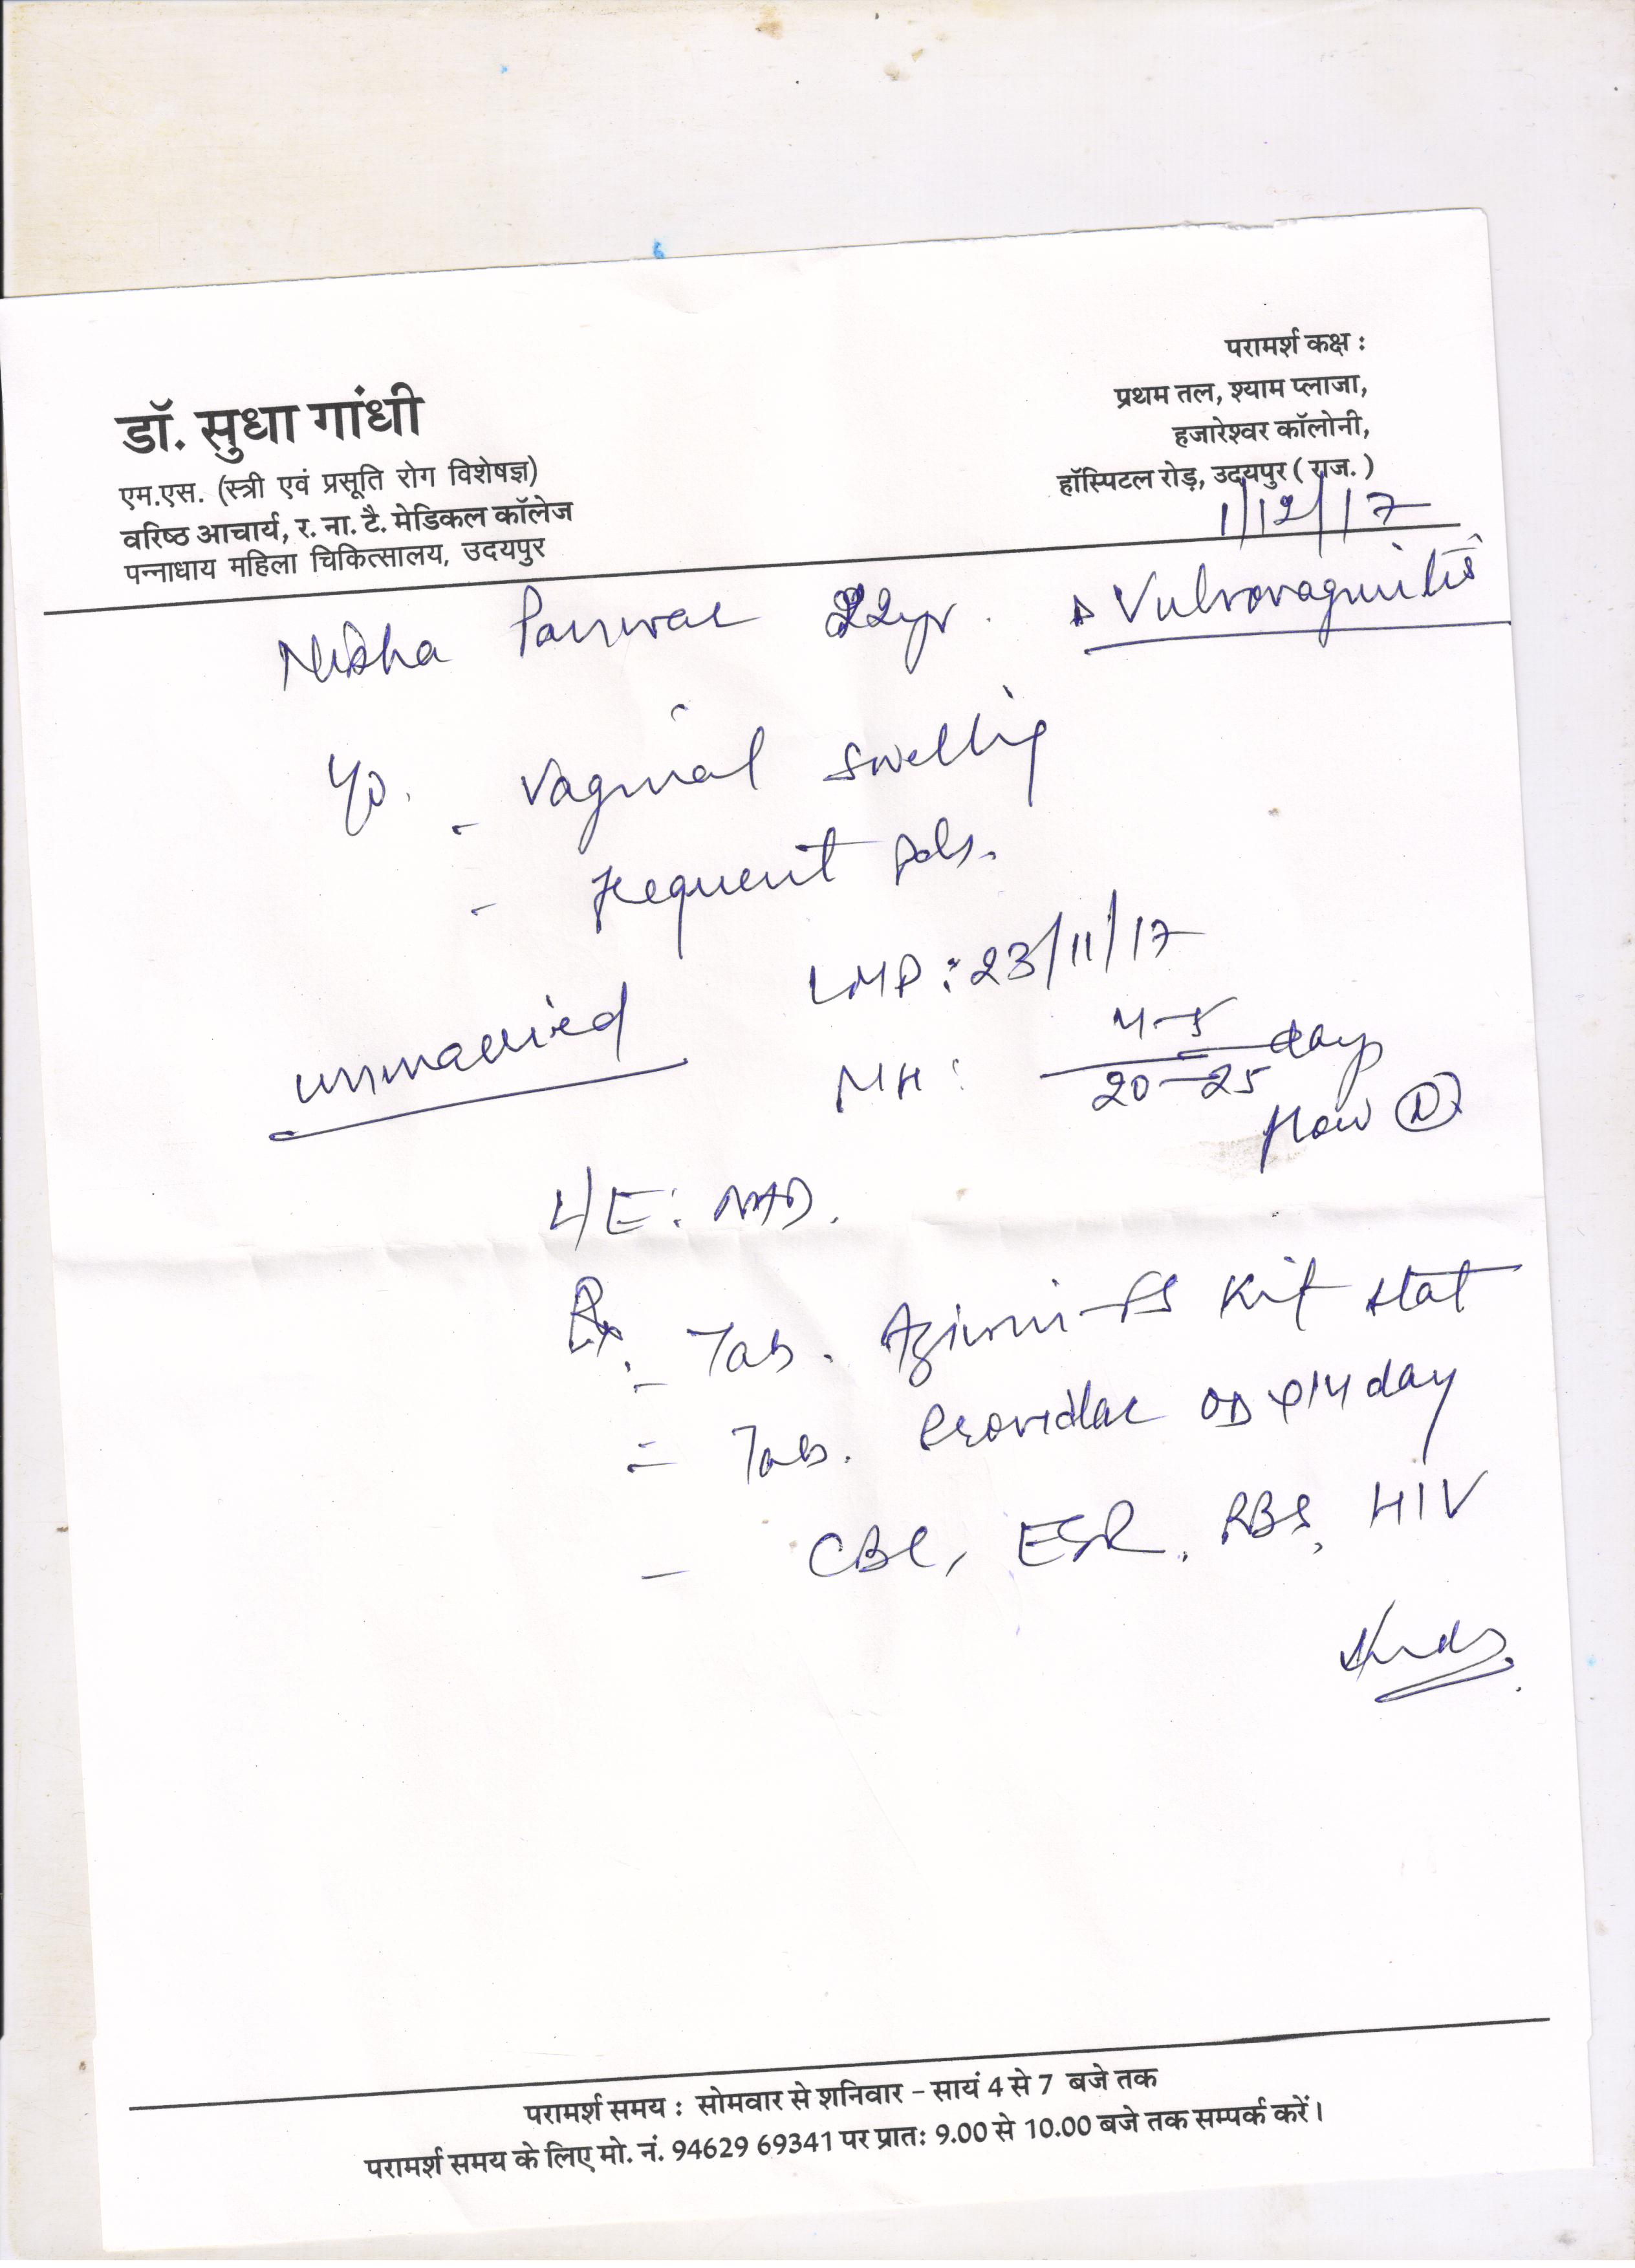 परामर्श कक्ष :
प्रथम तल, श्याम प्लाजा,
हजारेश्वर कॉलोनी,
हॉस्पिटल रोड़, उदयपुर ( राज. )
डॉ. सुधा गांधी
एम.एस. (स्त्री एवं प्रसूति रोग विशेषज्ञ)
वरिष्ठ आचार्य, र. ना. टै. मेडिकल कॉलेज
पन्नाधाय महिला चिकित्सालय, उदयपुर
1/12/17
Nisha Panwar 22yr. Vulvovaginitis
- Vaginal swelling
- frequent
LMP : 23/11/17
unmarried
MH : 4-5/20-25 days
flow (N)
L/E : NAD.
Rx
- Tab. Kit stat
- Tab. OD x 14 day
- CBC, ESR, RBS, HIV
परामर्श समय : सोमवार से शनिवार - सायं 4 से 7 बजे तक
परामर्श समय के लिए मो. नं. 94629 69341 पर प्रातः 9.00 से 10.00 बजे तक सम्पर्क करें।